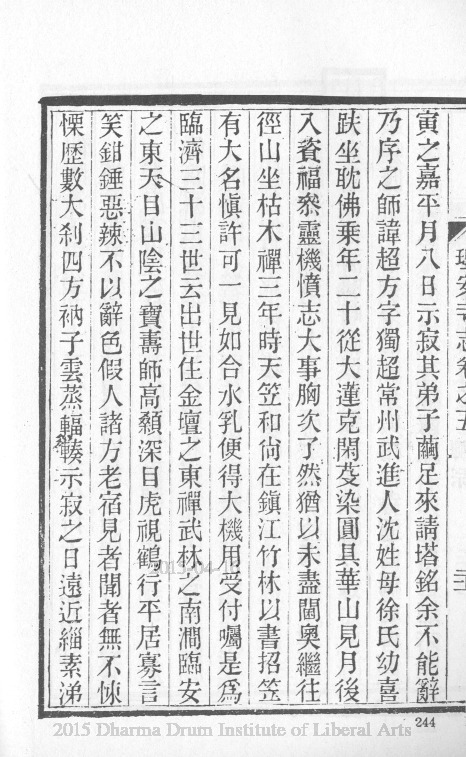 寅之嘉平月八日示寂其弟子繭足來請塔銘余不能辭
乃序之師諱超方字獨超常州武進人沈姓母徐氏幼喜
趺坐耽佛乘年二十從大蓮克閑芟染圓具華山見月後
入資福叅靈機憤志大事胸次了然猶以未盡閫奧繼往
徑山坐枯木禪三年時天笠和尙在鎭江竹林以書招笠
有大名愼許可一見如合水乳便得大機用受付囑是爲
臨濟三十三世云出世住金壇之東禪武林之南澗臨安
之東天目山陰之寶壽師高顙深目虎視鶴行平居寡言
笑鉗錘惡辣不以辭色假人諸方老宿見者聞者無不悚
慄歷數大刹四方衲子雲蒸輻輳示寂之日遠近緇素涕
244
2015 Dharma Drum Institute of Liberal Arts